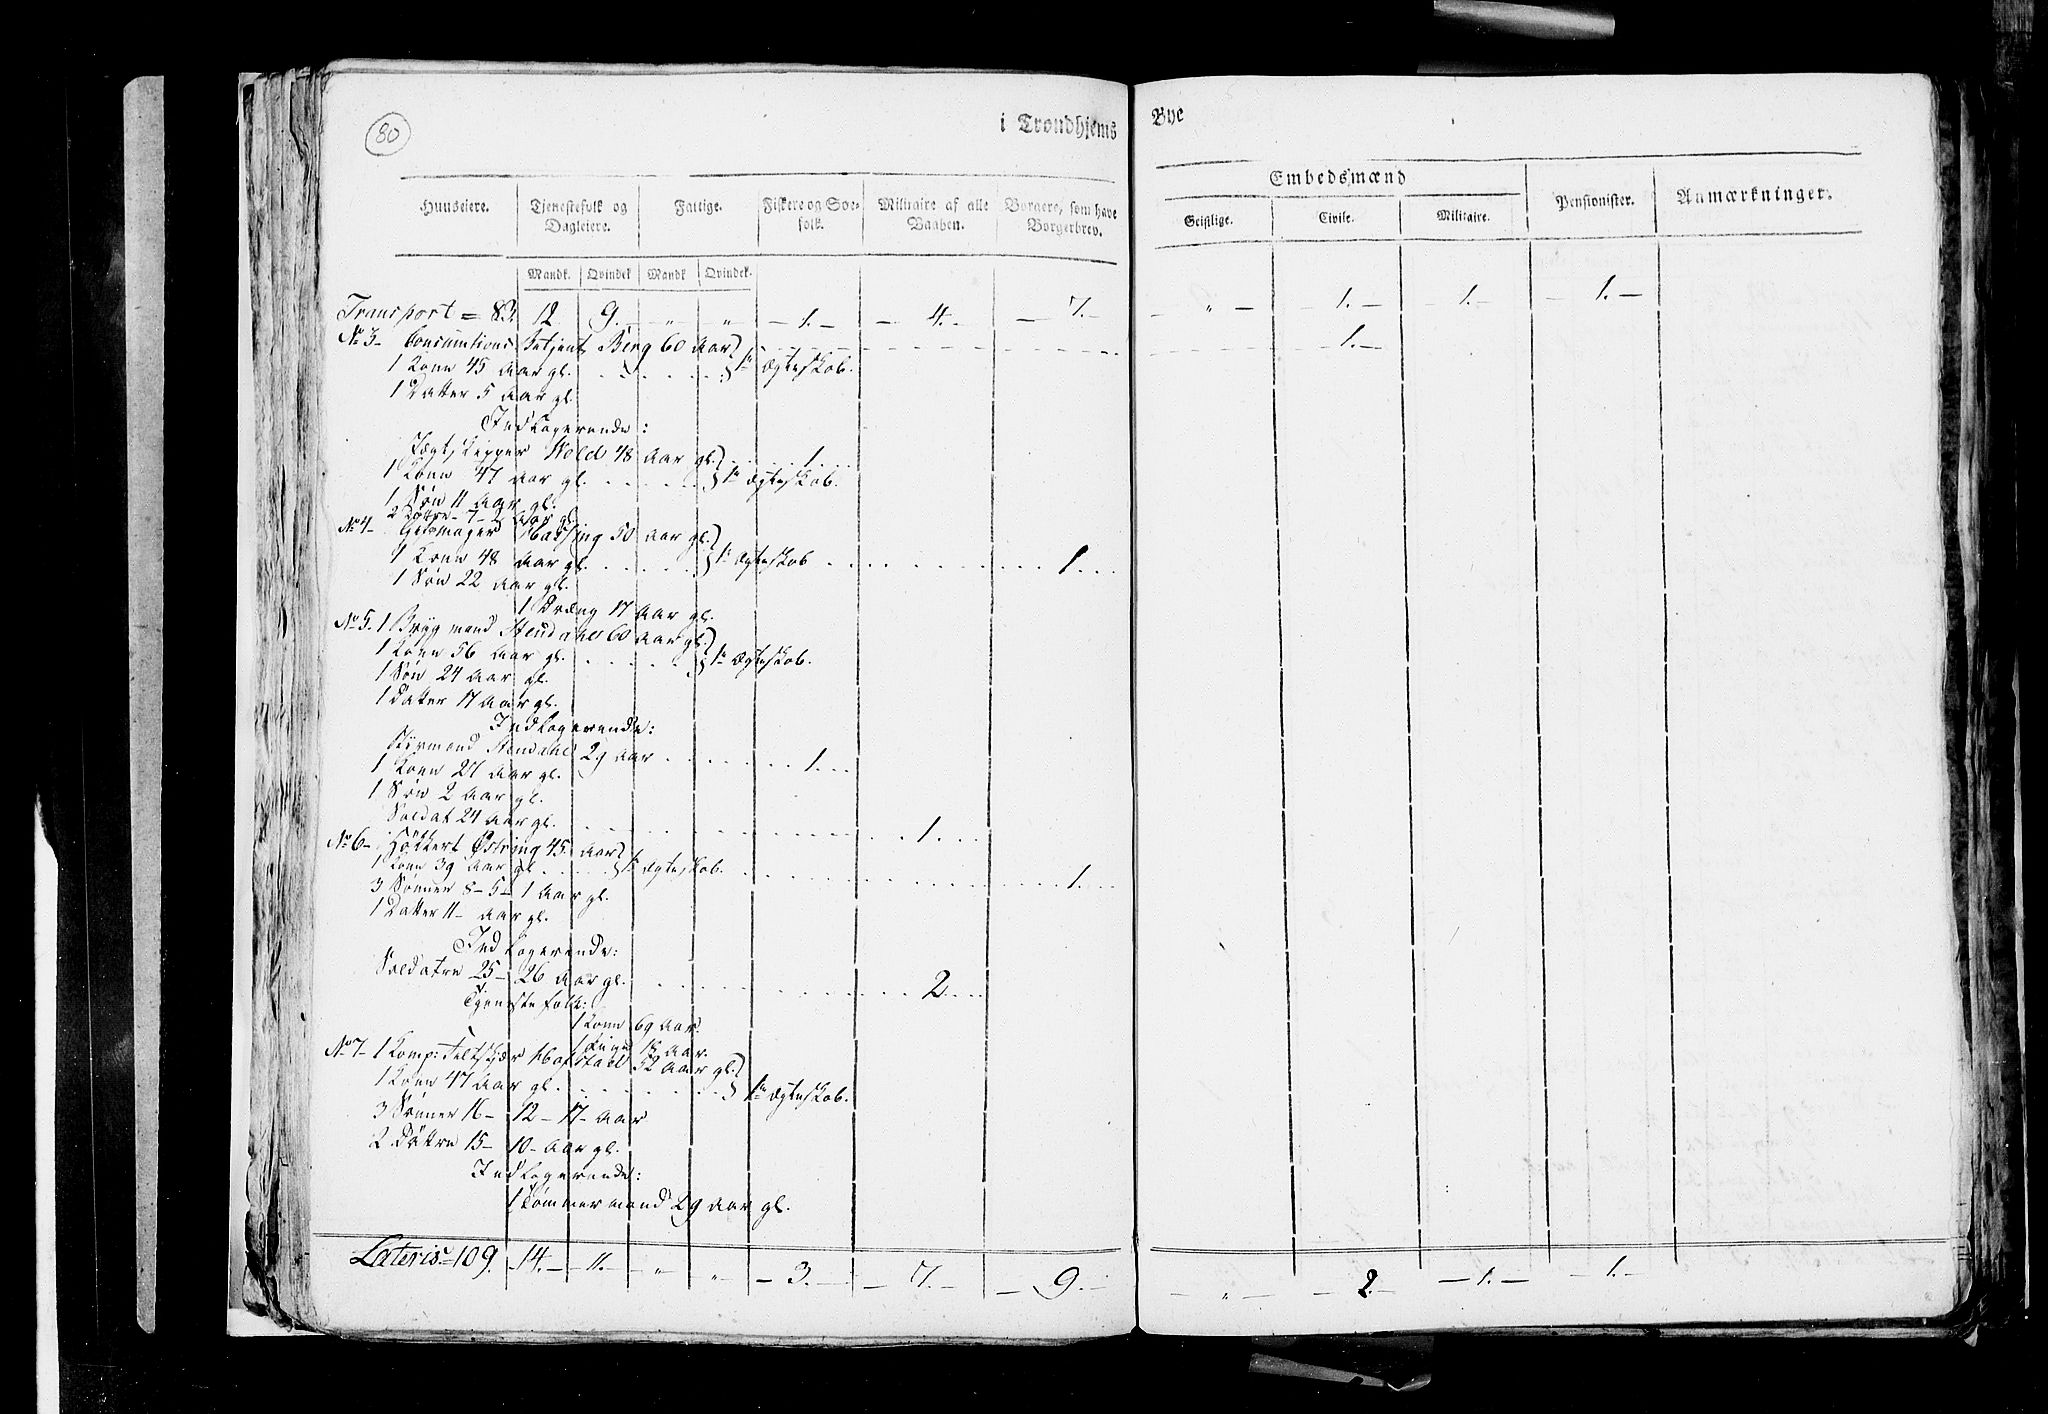 80
i Trondhjems Bye
Huuseiere. Tjenestefolk og Dagleiere. Fattige. Fiskere og Søefolk. Militaire af alle Vaaben. Borgere, som have Borgerbrev. Embedsmænd Geistlige. Civile. Militaire. Pensionister. Anmærkninger.
Mandk. Qvindek Mandk Qvindek.
Transport = 83. 12 9. - " - " - 1. - - 4. - - 7. - - " - - 1. - - 1. - - 1. -
No 3- Consumtions Betjent Berg 60 Aar 1.-
1 Kone 45 Aar gl. 1te Ægteskab.
1 Datter 5 Aar gl.
Indlogerende:
Jægt Skipper Wold 48 Aar gl. 1
1 Kone 47 Aar gl. 1te Ægteskab.
1 Søn 11 Aar gl.
2 Døtre - 7 - 2 Aar gl.
No 4- Hassing 50 Aar gl.
1 Kone 48 Aar gl. 1te Ægteskab 1
1 Søn 22 Aar gl.
1 Dreng 17 Aar gl.
No 5. 1 Brygmand Stendahl 60 Aar gl.
1 Kone 56 Aar gl. 1te Ægteskab.
1 Søn 24 Aar gl.
1 Datter 17 Aar gl.
Indlogerende:
Styrmand Stendahl 29 Aar 1.
1 Kone 27 Aar gl.
1 Søn 2 Aar gl.
Soldat 24 Aar gl. 1.
No 6- Høkker Østring 45 Aar
1 Kone 39 Aar gl. 1te Ægteskab. 1.
3 Sønner 8 - 5 - 1 Aar gl.
1 Datter 11- Aar gl.
Indlogerende:
Soldater 25 - 26 Aar gl. 2.
Tjenestefolk:
1 Kone 69 Aar.
1 Pige 18 Aar.
No 7- 1 Komp: Feltskjær Hafstad 52 Aar gl.
1 Kone 47 Aar gl. 1te Ægteskab.
3 Sønner 16 - 12 - 17- Aar
2 Døtre 15 - 10- Aar gl.
Indlogerende:
1 Tømmermand 29 Aar gl.
Lateris 109. 14. - 11. - " " - 3. - - 7. - - 9. - - " - - 2. - - 1. - - 1. -